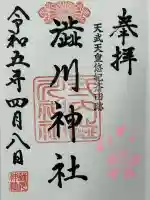 奉拝
天武天皇悠紀斎田跡
澁川神社
令和五年四月八日